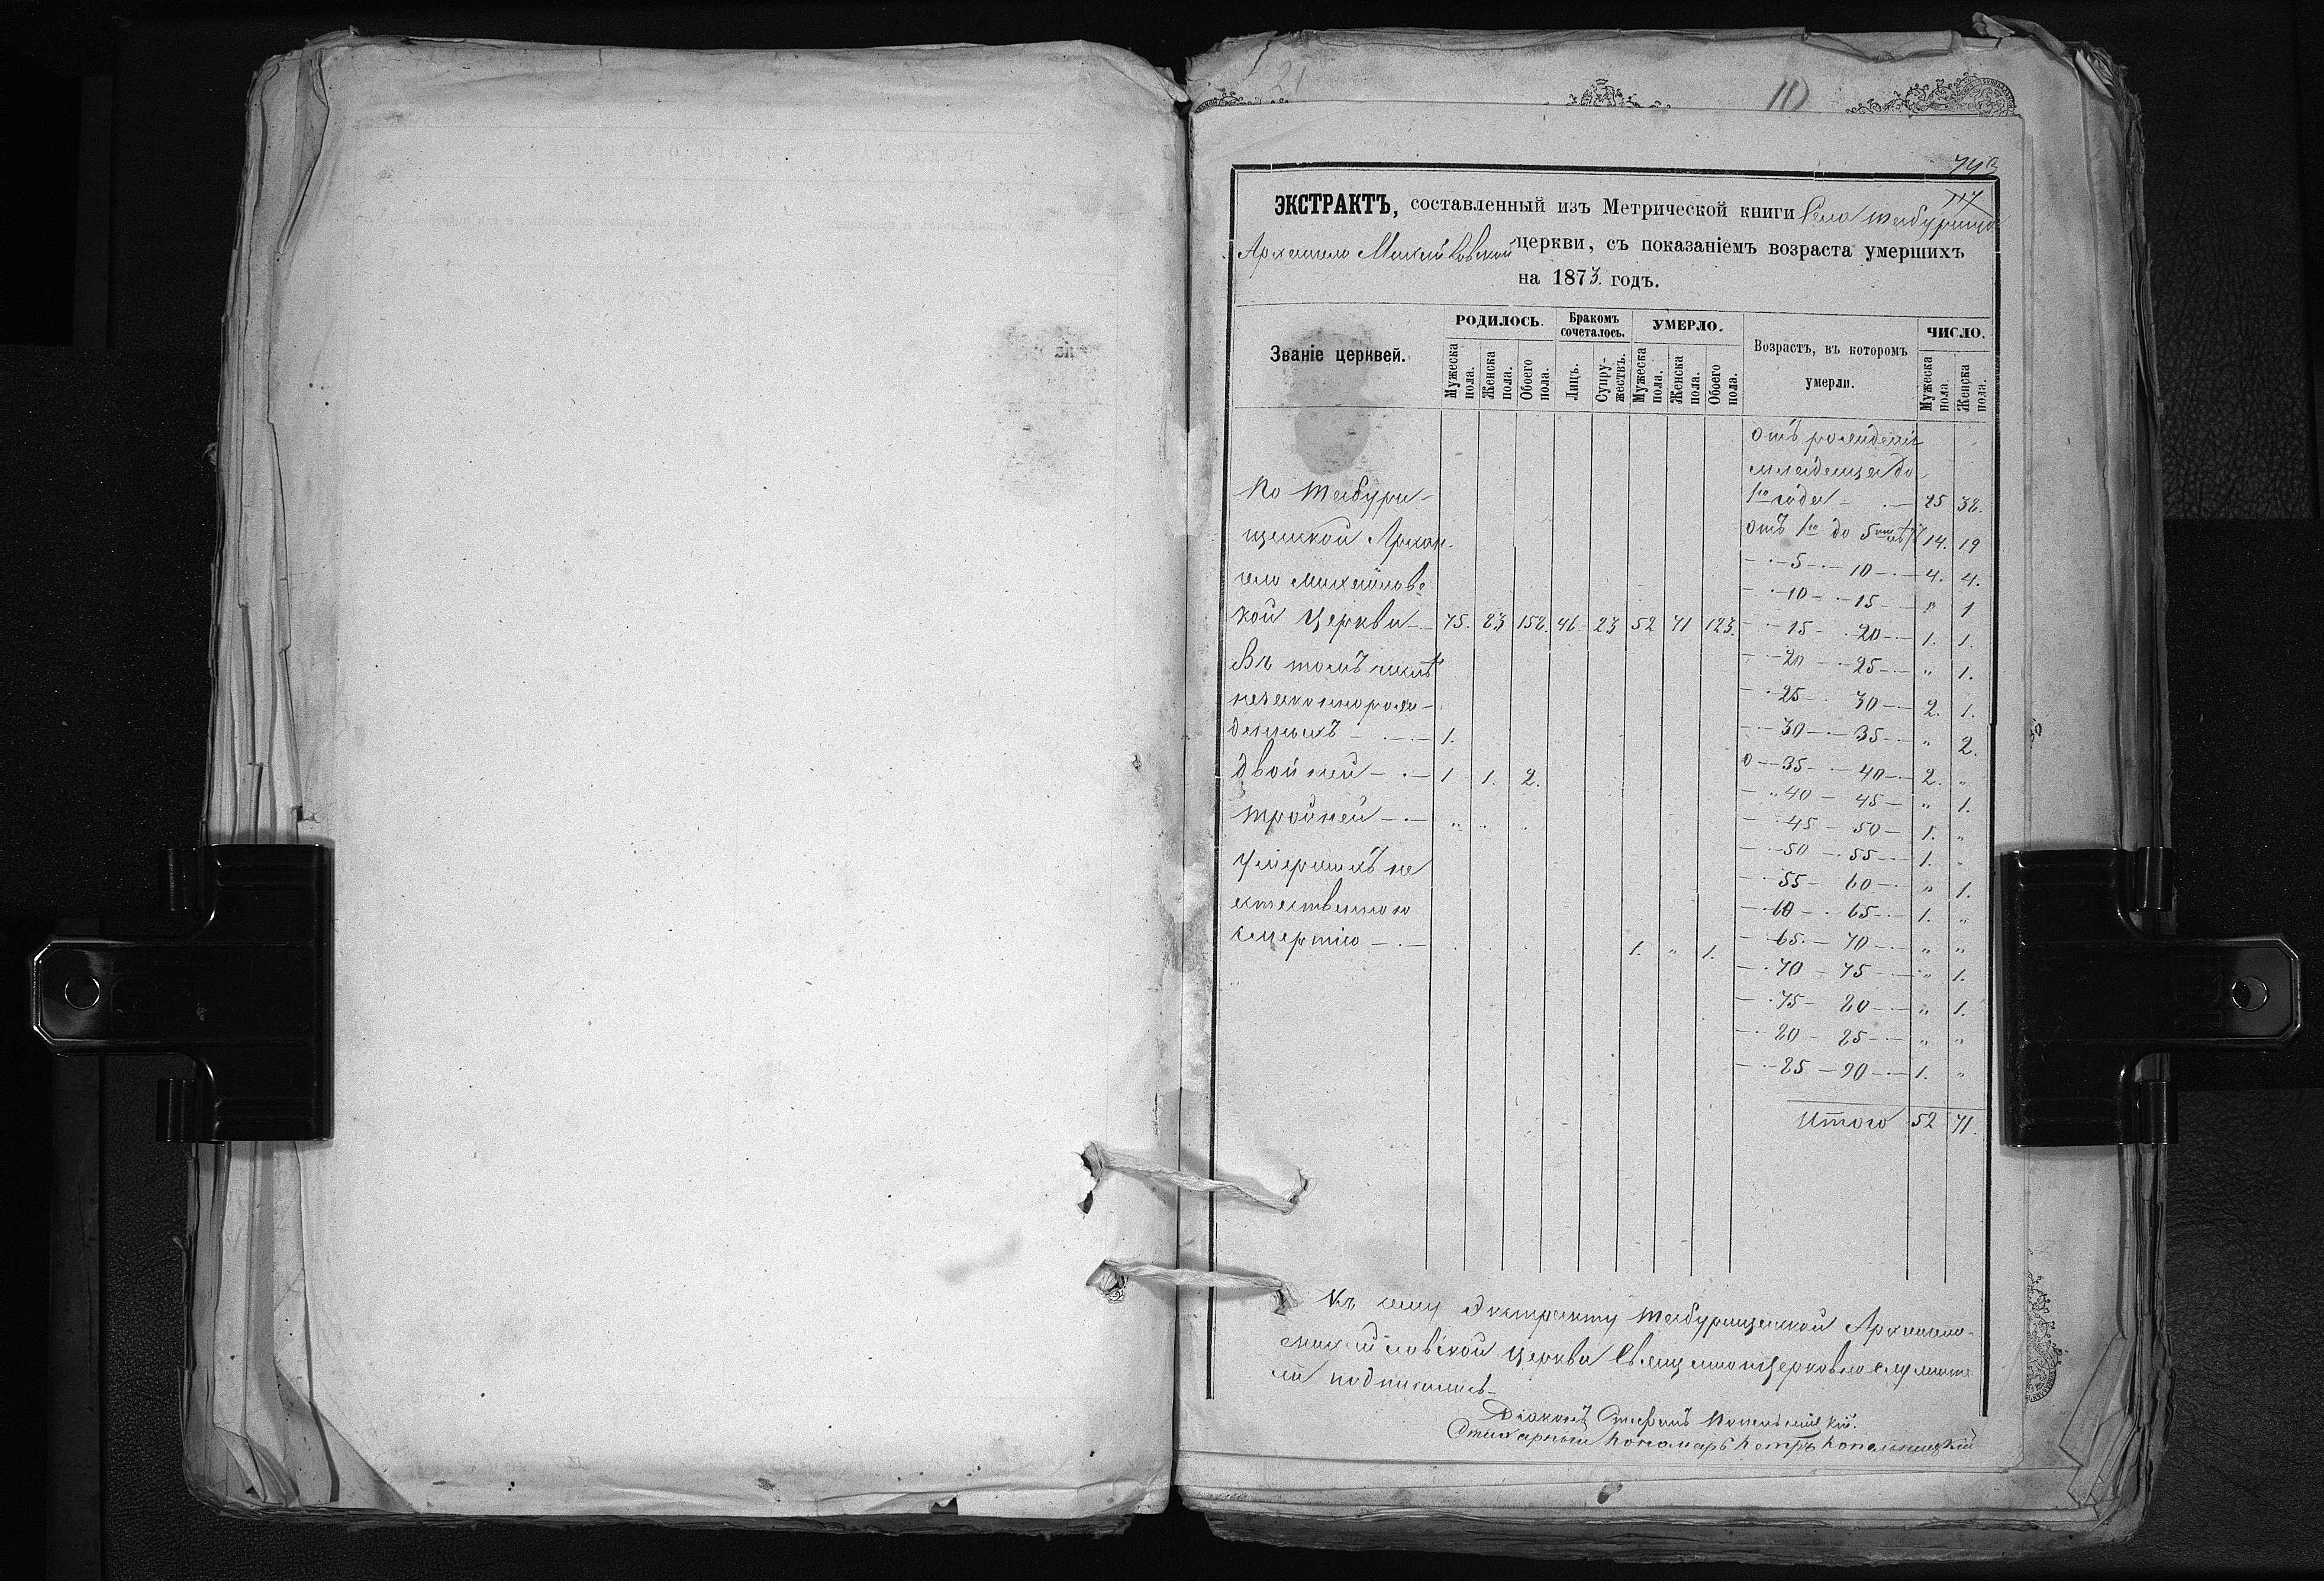 110
ЭКСТРАКТЪ, составленный изъ Метрической книги Села Табурища
Архангело Михайловской церкви, съ показаніемъ возраста умершихъ
на 1873. годъ.
Званіе церквей.
РОДИЛОСЬ.
Мужеска пола.
Женска пола.
Обоего пола.
Бракомъ сочеталось.
Лицъ.
Супружествъ.
УМЕРЛО.
Мужеска пола.
Женска пола.
Обоего пола.
Возрастъ, въ которомъ
умерли.
ЧИСЛО.
Мужеска пола.
Женска пола.
По Табури-
щенской Архан-
гело Михайловс
кой Церкви — 75. 83 158. 46 23 52 71 123.
Въ томъ числѣ
незаконнорож-
денныхъ — 1.
двойней — 1 1. 2.
тройней — „ „
Умершихъ не
естественною
смертію — 1. „ 1.
отъ рожденія
младенца до
1го года — 25 38.
отъ 1го до 5ти лѣтъ 14. 19
— 5 — 10 — 4. 4.
— 10 — 15 — „ 1
— 15 — 20 — 1. 1.
— 20 — 25 — „ 1.
— 25 — 30 — 2. 1.
— 30 — 35 — „ 2.
— 35 — 40 — 2. „
— 40 — 45 — „ 1.
— 45 — 50 — 1. „
— 50 — 55 — 1. „
— 55 — 60 — „ 1.
— 60 — 65 — 1. „
— 65 — 70 — „ „
— 70 — 75 — „ 1.
— 75 — 80 — „ 1.
— 80 — 85 — „ „
— 85 — 90 — 1. „
Итого 52 71.
Къ сему Экстракту Табурищенской Архангело-
михайловской церкви Священноцерковнослужите
ли подписались
Діаконъ Стефанъ
Стихарный пономарь Петръ